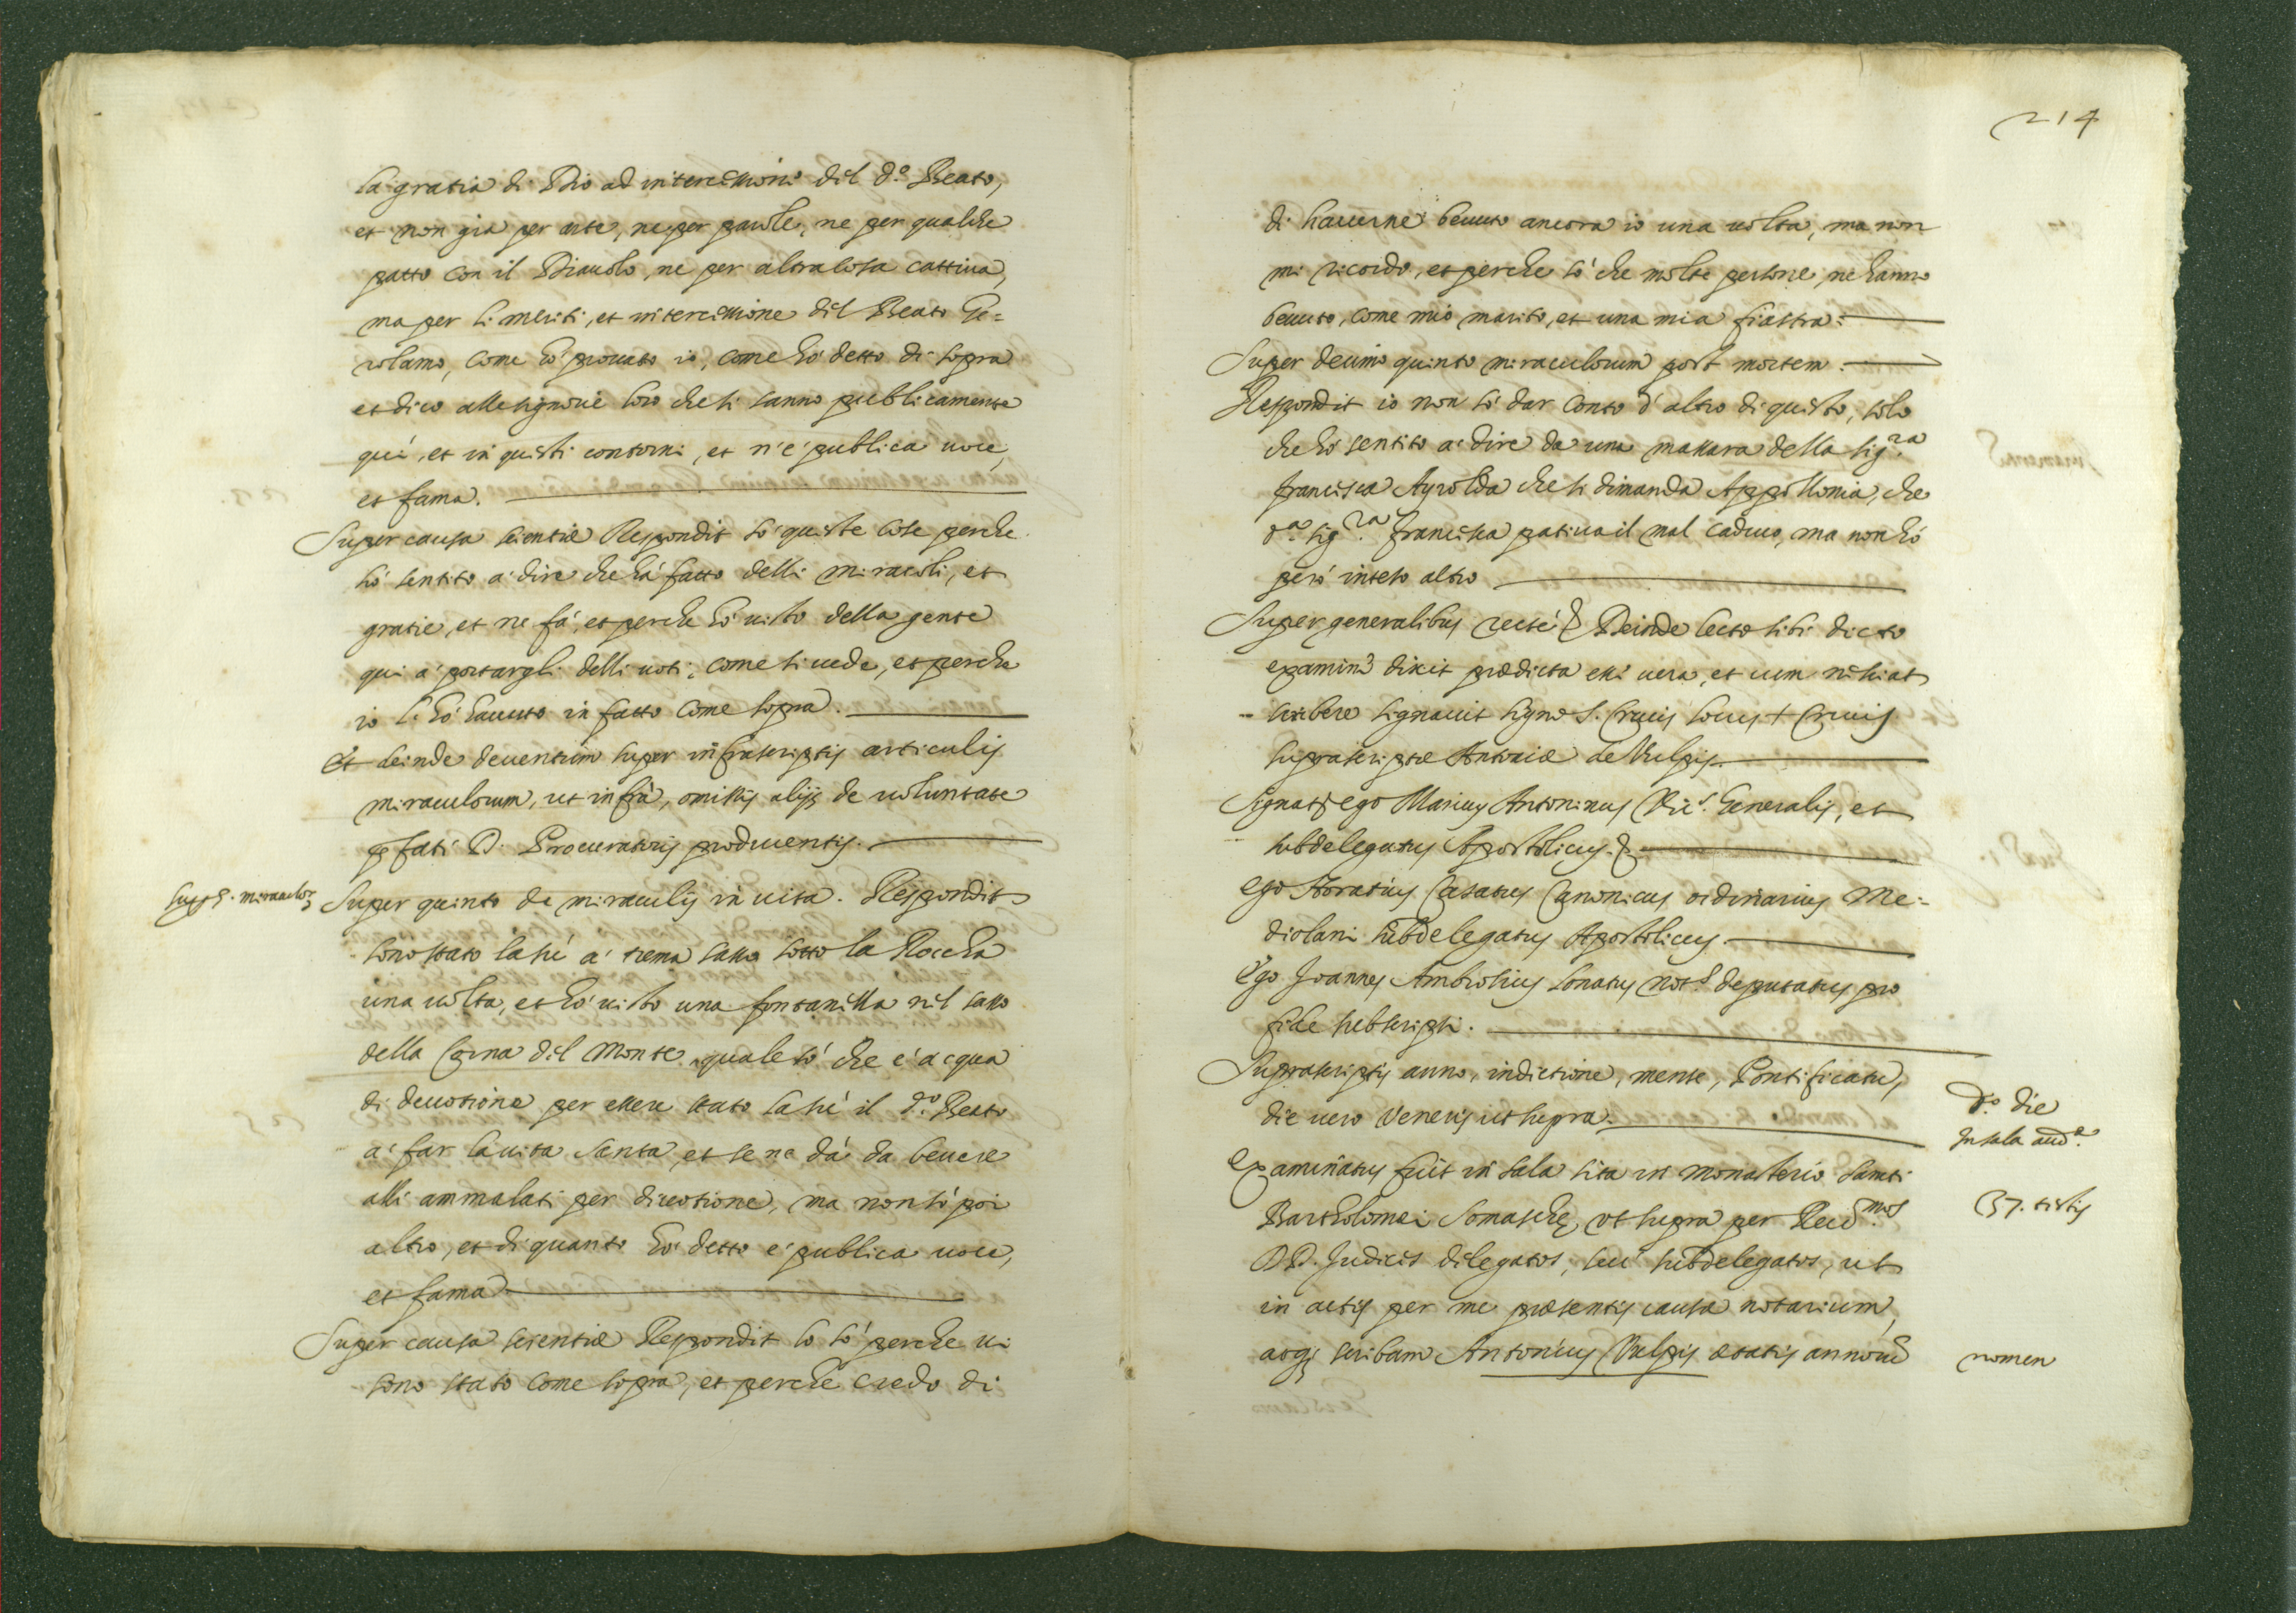 la gratia di Dio ad intercessione del d.º Beato,
et non gia per arte, ne per parole, ne per qualche
patto con il Diavolo, ne per altra cosa cattiva,
ma per li meriti, et intercessione del Beato Ge=
rolamo, come hò provato io, come hò detto di sopra
et dico alle signorie loro che si sanno publicamente
quì, et in questi contorni, et n'è publica voce,
et fama.
Super causa scientiæ Respondit sò queste cose perche
hò sentito à dire che hà fatto delli miracoli, et
gratie, et ne fà, et perche hò visto della gente
qui à portargli delli voti, come si vede, et perche
io l'hò havuto in fatto come sopra.
Et deinde deventum super infrascriptis articulis
miraculorum, ut infrà, omissis alijs de voluntate
p̱fati D. Procuratoris producentis.
Sup.r 5. miraculoꝝ
Super quinto de miraculis in vita. Respondit
sono stato la sù à trema sasso sotto la Roccha
una volta, et hò visto una fontanella nel sasso
della Corna del Monte quale sò che è acqua
di devotione per essere stato la sù il d.º Beato
à far la vita santa, et se ne dà da bevere
alli ammalati per divotione, ma non sò poi
altro, et di quanto hò detto è publica voce,
et fama
Super causa scientiæ Respondit lo sò perche vi
sono stato come sopra, et perche credo di
214
di haverne bevuto ancora io una volta, ma non
mi ricordo, et perche sò che molte persone ne hanno
bevuto, come mio marito, et una mia fiastra:
Super decimo quinto miraculorum post mortem.
Respondit io non sò dar conto d'altro di questo, solo
che hò sentito à dire da una massara della sig.ra
Francisca Ayrolda che si dimanda Appollonia, che
d.a sig.ra Francisca pativa il mal caduco, ma non hò
però inteso altro
Super generalibus recte & Deinde lecto sibi dicto
examine dixit prædicta esse vera, et cum nesciat
scribere signavit signo S. Crucis locus + Crucis
suprascriptæ Antoniæ de Vulpis.
Signat. ego Marius Antoninus Vic.s Generalis, et
subdelegatus Apostolicus &
Ego Horatius Casatus Canonicus ordinarius Me=
diolani subdelegatus Apostolicus.
Ego Joannes Ambrosius Lonatus not.s deputatus pro
fide subscripsi.
Suprascriptis anno, indictione, mense, Pontificatu,
die vero Veneris ut supra.
d.º die
In sala aud.a
Examinatus fuit in sala sita in Monasterio Sancti
Bartholomei Somaschę, ut supra per Reud.mos
37. testis
DD. Judices delegatos, seu subdelegatos, ut
in actis per me præsentis causæ notarium,
acq3 scribam Antonius Vulpis ætatis annorũ
nomen